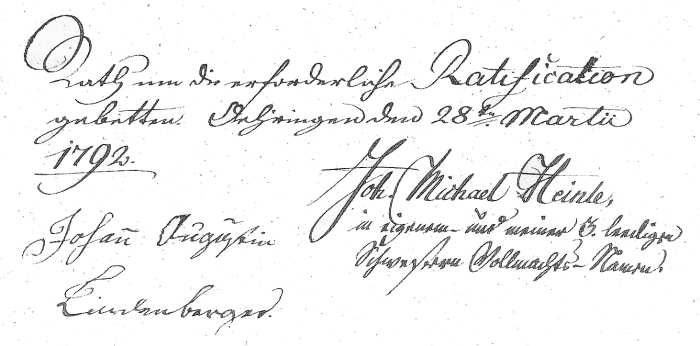 Rath um die erforderliche Ratification
gebetten. Oehringen den 28ten Martii
1792.
Joh. Michael Heinle,
in eigenem- und meiner 3. leedigen
Schwestern Vollmachts-Namen.
Johann Augustin
Lindenberger.